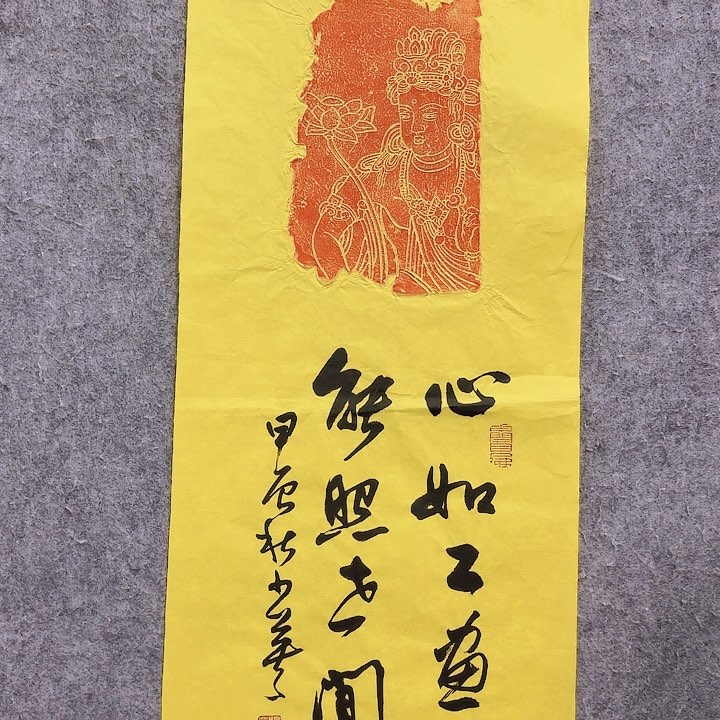 心如工畫
能照世間
甲辰秋少